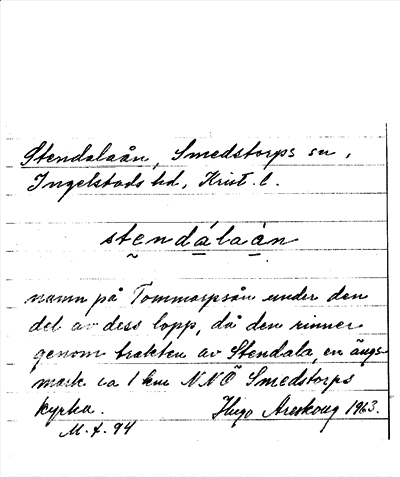 Stendalaån, Smedstorps sn,
Ingelstads hd, Krist. l.
stendálaàn
namn på Tommarpsån under den
del av dess lopp, då den rinner
genom trakten av Stendala, en ängs-
mark ca 1 km NNÖ Smedstorps
kyrka. Hugo Areskoug 1963.
M. f. 94